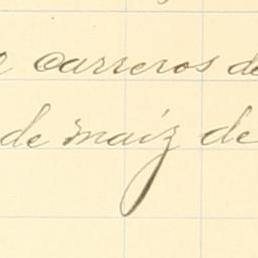 carreros de
de maíz de